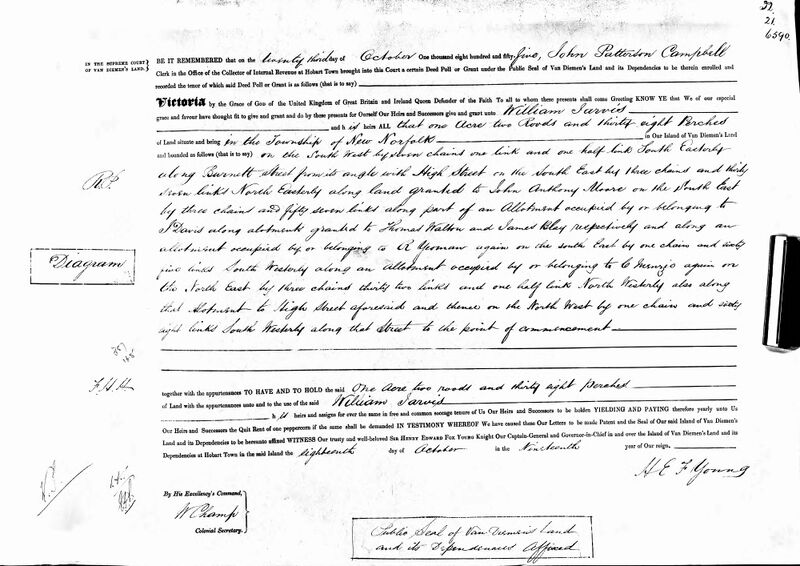 22.
21.
6590.
IN THE SUPREME COURT
OF VAN DIEMEN'S LAND.
BE IT REMEMBERED that on the twenty third day of October One thousand eight hundred and fifty-five, John Patterson Campbell
Clerk in the Office of the Collector of Internal Revenue at Hobart Town brought into this Court a certain Deed Poll or Grant under the Public Seal of Van Diemen's Land and its Dependencies to be therein enrolled and
recorded the tenor of which said Deed Poll or Grant is as follows (that is to say)
Victoria by the Grace of GOD of the United Kingdom of Great Britain and Ireland Queen Defender of the Faith To all to whom these presents shall come Greeting KNOW YE that We of our especial
grace and favour have thought fit to give and grant and do by these presents for Ourself Our Heirs and Successors give and grant unto William Jarvis
and his heirs ALL that one Acre two Roods and thirty eight Perches
of Land situate and being in the Township of New Norfolk in Our Island of Van Diemen's Land
and bounded as follows (that is to say) on the South West by seven chains one link and one half link South Easterly
along Burnett Street from its angle with High Street on the South East by three chains and thirty
seven links North Easterly along land granted to John Anthony Moore on the South East
by three chains and fifty seven links along part of an Allotment occupied by or belonging to
J Davis along alotments granted to Thomas Walton and James Blay respectively and along an
allotment occupied by or belonging to R Yeoman again on the South East by one chain and sixty
five links South Westerly along an Allotment occupied by or belonging to C Menzie again on
the North East by three chains thirty two links and one half link North Westerly also along
that Alotment to High Street aforesaid and thence on the North West by one chain and sixty
eight links South Westerly along that Street to the point of commencement
Diagram
together with the appurtenances TO HAVE AND TO HOLD the said One Acre two roods and thirty eight perches
of Land with the appurtenances unto and to the use of the said William Jarvis
his heirs and assigns for ever the same in free and common soccage tenure of Us Our Heirs and Successors to be holden YIELDING AND PAYING therefore yearly unto Us
Our Heirs and Successors the Quit Rent of one peppercorn if the same shall be demanded IN TESTIMONY WHEREOF We have caused these Our Letters to be made Patent and the Seal of Our said Island of Van Diemen's
Land and its Dependencies to be hereunto affixed WITNESS Our trusty and well-beloved SIR HENRY EDWARD FOX YOUNG Knight Our Captain-General and Governor-in-Chief in and over the Island of Van Diemen's Land and its
Dependencies at Hobart Town in the said Island the Eighteenth day of October in the Nineteenth year of Our reign.
H E F Young
By His Excellency's Command,
W Champ
Colonial Secretary.
Public Seal of Van Diemen's Land
and its Dependencies Affixed